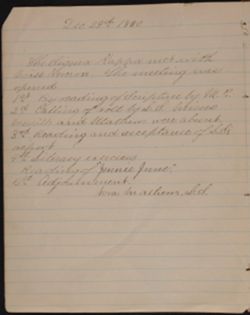 Dec 28th 1880
The Sigma Kappa met with
Miss Brown. The meeting was
opened
1st By reading of Scripture by M. P.
2nd Calling of roll by S.d. Misses
Smith and Mathews were absent.
3rd Reading and acceptance of S.d's
report
4th Literary exercises
Reading of "Jennie June."
5th Adjournment.
Mathews, S.d.